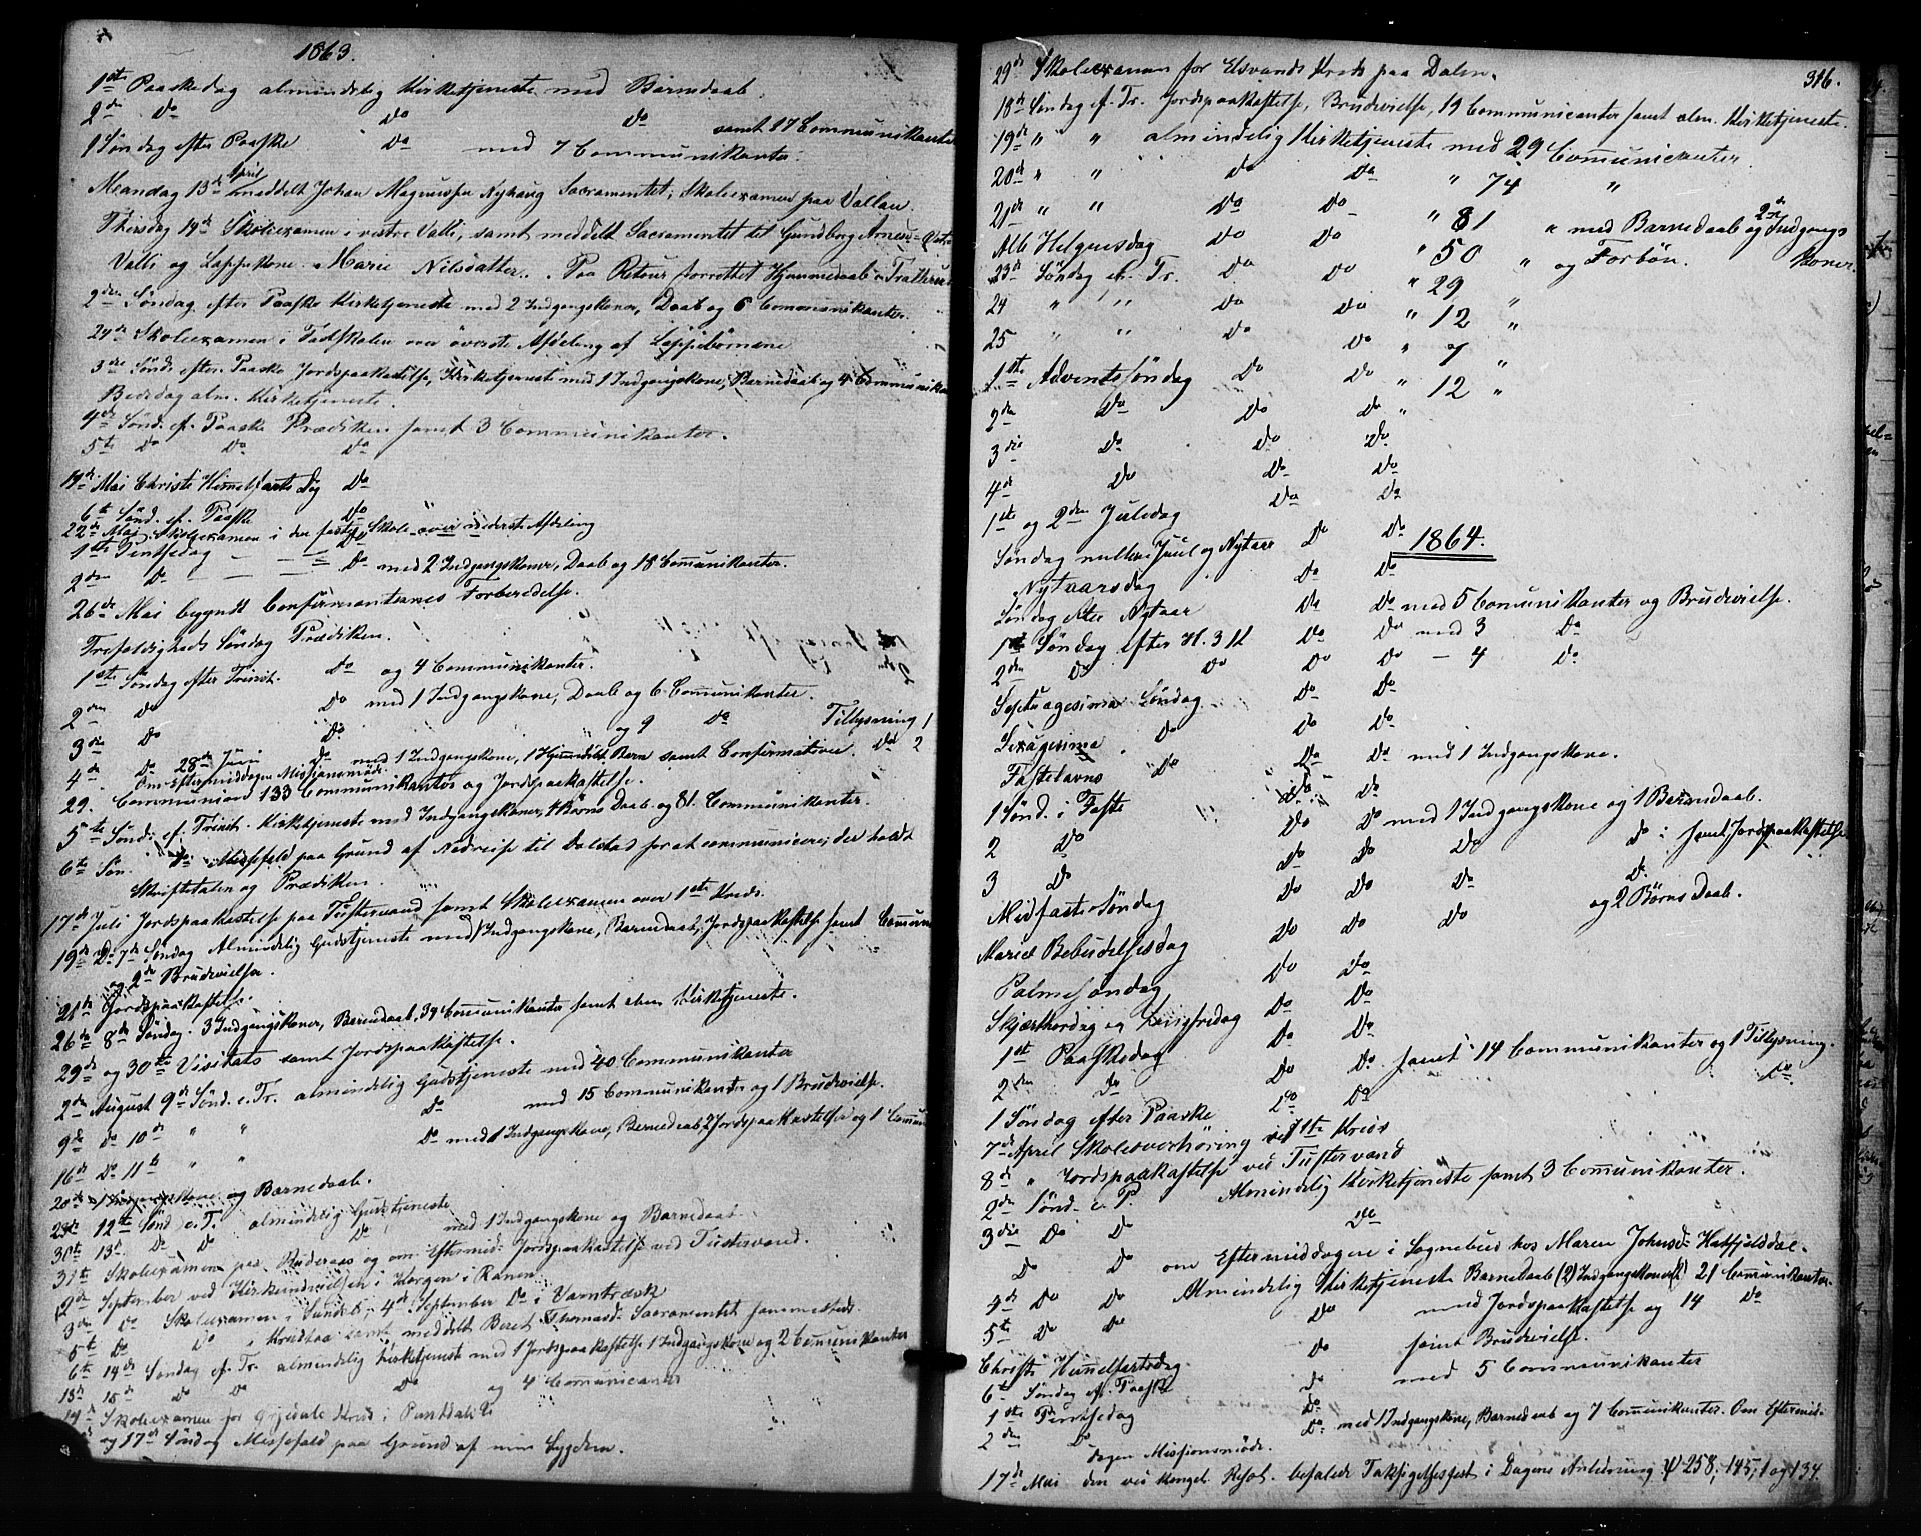 1863.
1ste Paaskedag almindelig Kirketjeneste med Barnedaab.
2den Do Do Do samt 17 Communikanter
1 Søndag efter Paaske Do med 7 Communikanter.
Mandag 13de April meddelt Johan Magnussen Nyhaug Sacramentet, Skoleexamen paa Vallan.
Thirsdag 14de Skoleexamen i vestre Valli, samt meddelt Sacramentet til Gundborg Arnesd.
Valli og Lappekone Marie Nilsdatter. Paa Retour forrettet Hjemmedaab i
2den Søndag efter Paaske Kirketjeneste med 2 Indgangskoner, Daab og 6 Communikanter.
24de Skoleexamen i Fastskolen over øverste Afdeling af Lappebørnene
3die Sønd. efter Paaske Jordspaakastelse, Kirketjeneste med 1 Indgangskone, Barnedaab og 4 Communika
Bededag alm. Kirketjeneste.
4de Sønd. ef. Paaske Prædiken samt 3 Communikanter.
5te Do Do Do
14de Mai Christi Himmelfarts Dag Do
6te Sønd. ef. Paaske Do
22de Mai Skoleexamen i den faste Skole over nederste Afdeling
1ste Pintsedag — — — Do
2den Do — — — Do med 2 Indgangskoner, Daab og 18 Comunikanter.
26de Mai begyndt Confirmanternes Forberedelse.
Trefoldigheds Søndag Prædiken.
1ste Søndag efter Trinit. Do og 4 Communikanter.
2den Do Do med 1 Indgangskone, Daab og 6 Comunikanter.
3die Do Do og 9 Do Tillysning 1
4de Do 28de Juni Do med 1 Indgangskone, 1 Hjemdøbt Barn samt Confirmation. Do 2
Om Eftermiddagen Missionsmøde.
29. Communion 133 Communikanter og Jordspaakastelse.
5te Sønd. ef. Trinit. Kirketjeneste med Indgangskoner, 4 Børns Daab og 81 Communikanter.
6te Søn. Do Messefald paa Grund af Nedreise til Dolstad for at communicere; der holdt
Skriftetalen og Prædiken.
17de Juli Jordspaakastelse paa Tustervand samt Skoleexamen over 1ste Kreds.
19de Do 7de Søndag Almindelig Gudstjeneste med 1 Indgangskone, Barnedaab, Jordspaakastelse samt Commun
og 2de Brudevielser.
21de Jordspaakastelse.
26de 8de Søndag. 3 Indgangskoner, Barnedaab, 34 Comunikanter samt alm Kirketjeneste.
29de og 30te Visitats samt Jordspaakastelse.
2den August 9de Sønd. e. Tr. almindelig Gudstjeneste med 40 Communikanter
9de Do 10de " " Do med 15 Communikanter og 1 Brudevielse.
16de Do 11te " " Do med 1 Indgangskone, Barnedaab, 2 Jordspaakastelser og 1 Comun
20de 1 Indgangskone og Barnedaab.
23de 12te Sønd e. T. almindelig Gudstjeneste
30te 13de Do Do Do med 1 Indgangskone og Barnedaab
31te Skoleexamen paa og om Eftermid. Jordspaakastelse ved Tustervand.
2den September ved Kirkeindvielsen i Korgen i Ranen
3die Do Skoleexamen i 4de September Do i Vamtræsk
5te Do Do i samt meddelt Beret Thomasd. Sacramentet sammesteds.
6te 14de Søndag ef. Tr. almindelig Kirketjeneste med 1 Jordspaakastelse 1 Indgangskone og 2 Comunikanter
13de 15de Do Do Do og 4 Comunicanter
14de Skoleexamen for Kreds i
og 17de Søndag Messefald paa Grund af min Sygdom.
316.
29de Skoleexamen for Elsvands Kreds paa Dalen.
18de Søndag ef. Tr. Jordspaakastelse, Brudevielse, 19 Communicanter samt alm. Kirketjeneste.
19de " " almindelig Kirketjeneste med 29 Comunicanter
20de " " Do Do " 74 "
21de " " Do Do " 81 " med Barnedaab og 2de Indgangs
Alle Helgensdag Do Do " 50 " og Forbøn. koner.
23de Søndag ef. Tr. Do Do " 29
24 " " Do Do " 12 "
25 " " Do Do " 7 "
1ste Adventssøndag Do Do " 12 "
2den Do Do Do "
3die Do Do Do
4de Do Do Do
1ste og 2den Juledag Do Do
Søndag mellem Juul og Nytaar Do Do
1864.
Nytaarsdag Do Do
Søndag efter Nytaar Do Do med 5 Comunikanter og Brudevielse.
1ste Søndag efter H. 3 K Do Do med 3 Do
2den Do Do Do Do — 4 Do
Septuagesima Søndag Do Do
Sexagesima Do Do Do
Fastelavns Do Do Do med 1 Indgangskone.
1 Sønd. i Faste Do Do
2 Do Do Do med 1 Indgangskone og 1 Barnedaab.
3 Do Do Do Do Do samt Jordspaakastelse
Midfaste Søndag Do Do Do Do
Mariæ Bebudelsesdag Do Do Do og 2 Børns Daab.
Palmesøndag Do Do
Skjærthorsdag og Langfredag Do Do
1ste Paaskedag Do Do
2den Do Do Do samt 14 Communikanter og 1 Tillysning.
1 Søndag efter Paaske Do Do Do
7de April Skoleoverhøring ved 1ste Kreds
8de " Jordspaakastelse ved Tustervand
2den Sønd. e. P. Almindelig Kirketjeneste samt 3 Comunikanter.
3die Do Do Do
Do Do om Eftermiddagen i Sognebud hos Maren Johnsd. Hatfjelddal.
4de Do Do Almindelig Kirketjeneste Barnedaab (2) Indgangskoner 21 Comunikanter
5te Do Do Do med Jordspaakastelse og 14 Do
Christi Himmelfartsdag Do samt Brudevielse.
6te Søndag ef. Paaske Do med 5 Communikanter
1ste Pintsedag Do
2den Do Do med 1 Indgangskone, Barnedaab og 7 Comunikanter. Om Eftermid-
dagen Missionsmøde.
17de Mai den ved Kongel. Resol. befalede Taksigelsesfest i Dagens Anledning ψ 258; 145, 1 og 134.